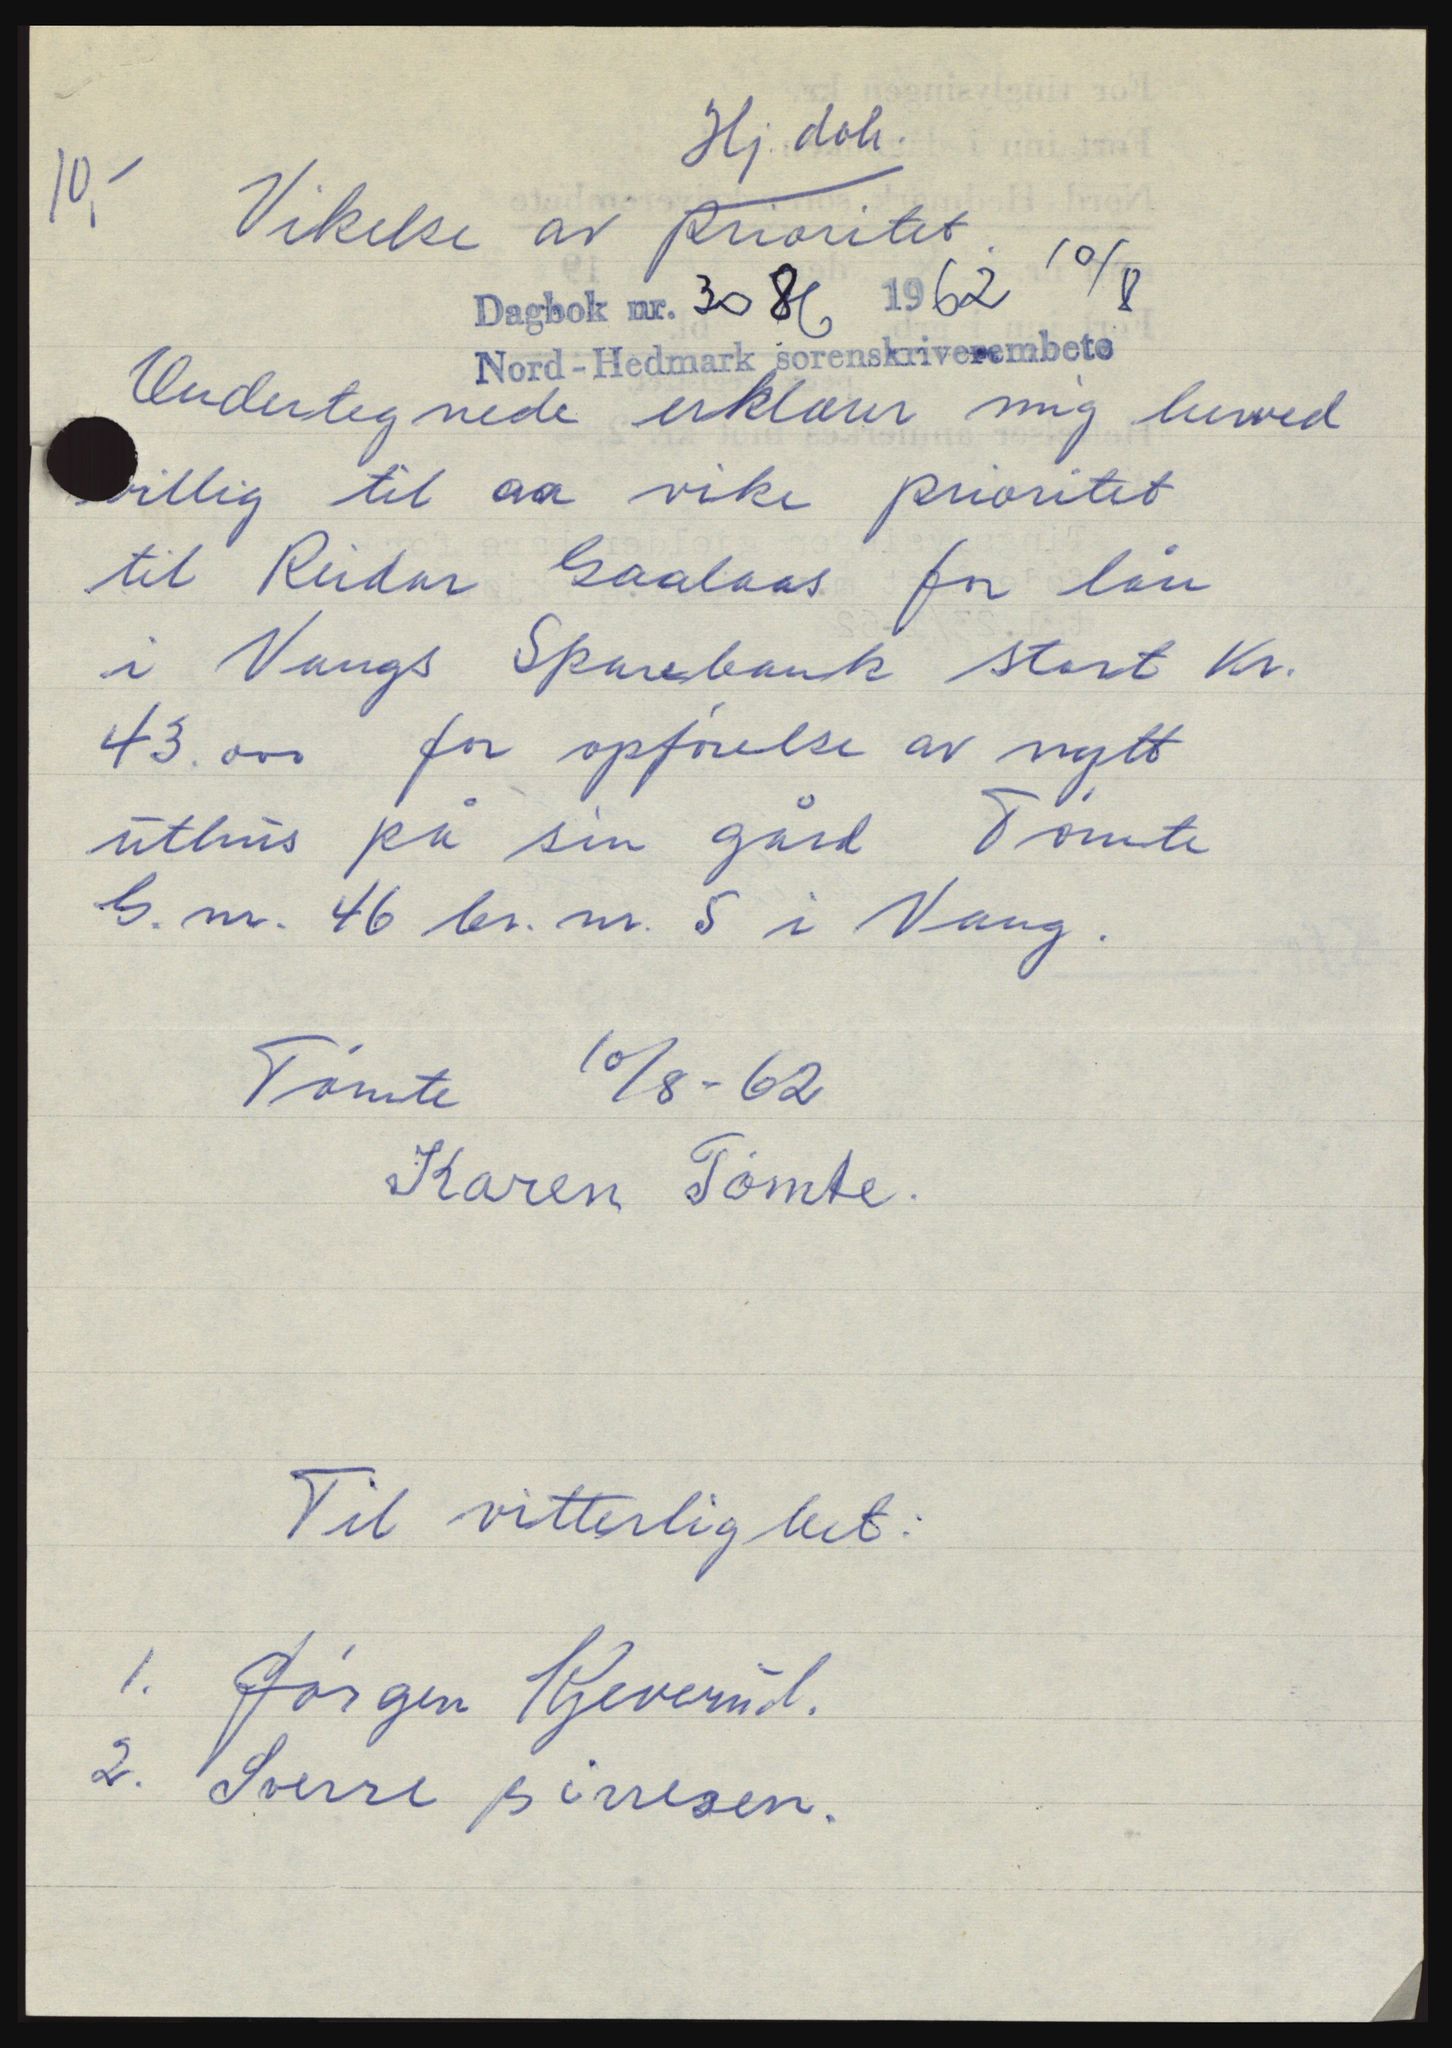 Hj. dok.
10,-
Vikelse av prioritet.
Dagbok nr. 3086 1962 10/8
Nord-Hedmark sorenskriverembete
Undertegnede erklærer mig herved
villig til aa vike prioritet
til Reidar Gaalaas for lån
i Vangs Sparebank stort Kr.
43.000 for opførelse av nytt
uthus på sin gård Tømte
G. nr. 46 br. nr. 5 i Vang.
Tømte 10/8-62
Karen Tømte.
Til vitterlighet:
1. Jørgen Kjeverud.
2. Sverre